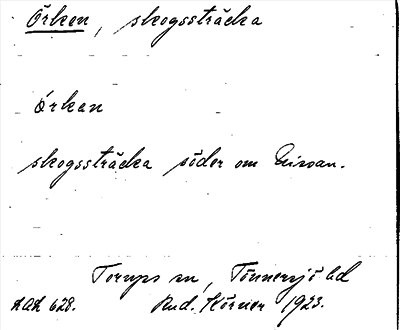 Örken, skogssträcka
örkan
skogssträcka söder om
Torups sn, Tönnersjö hd
AAH 628. Rud. Hörner 1923.